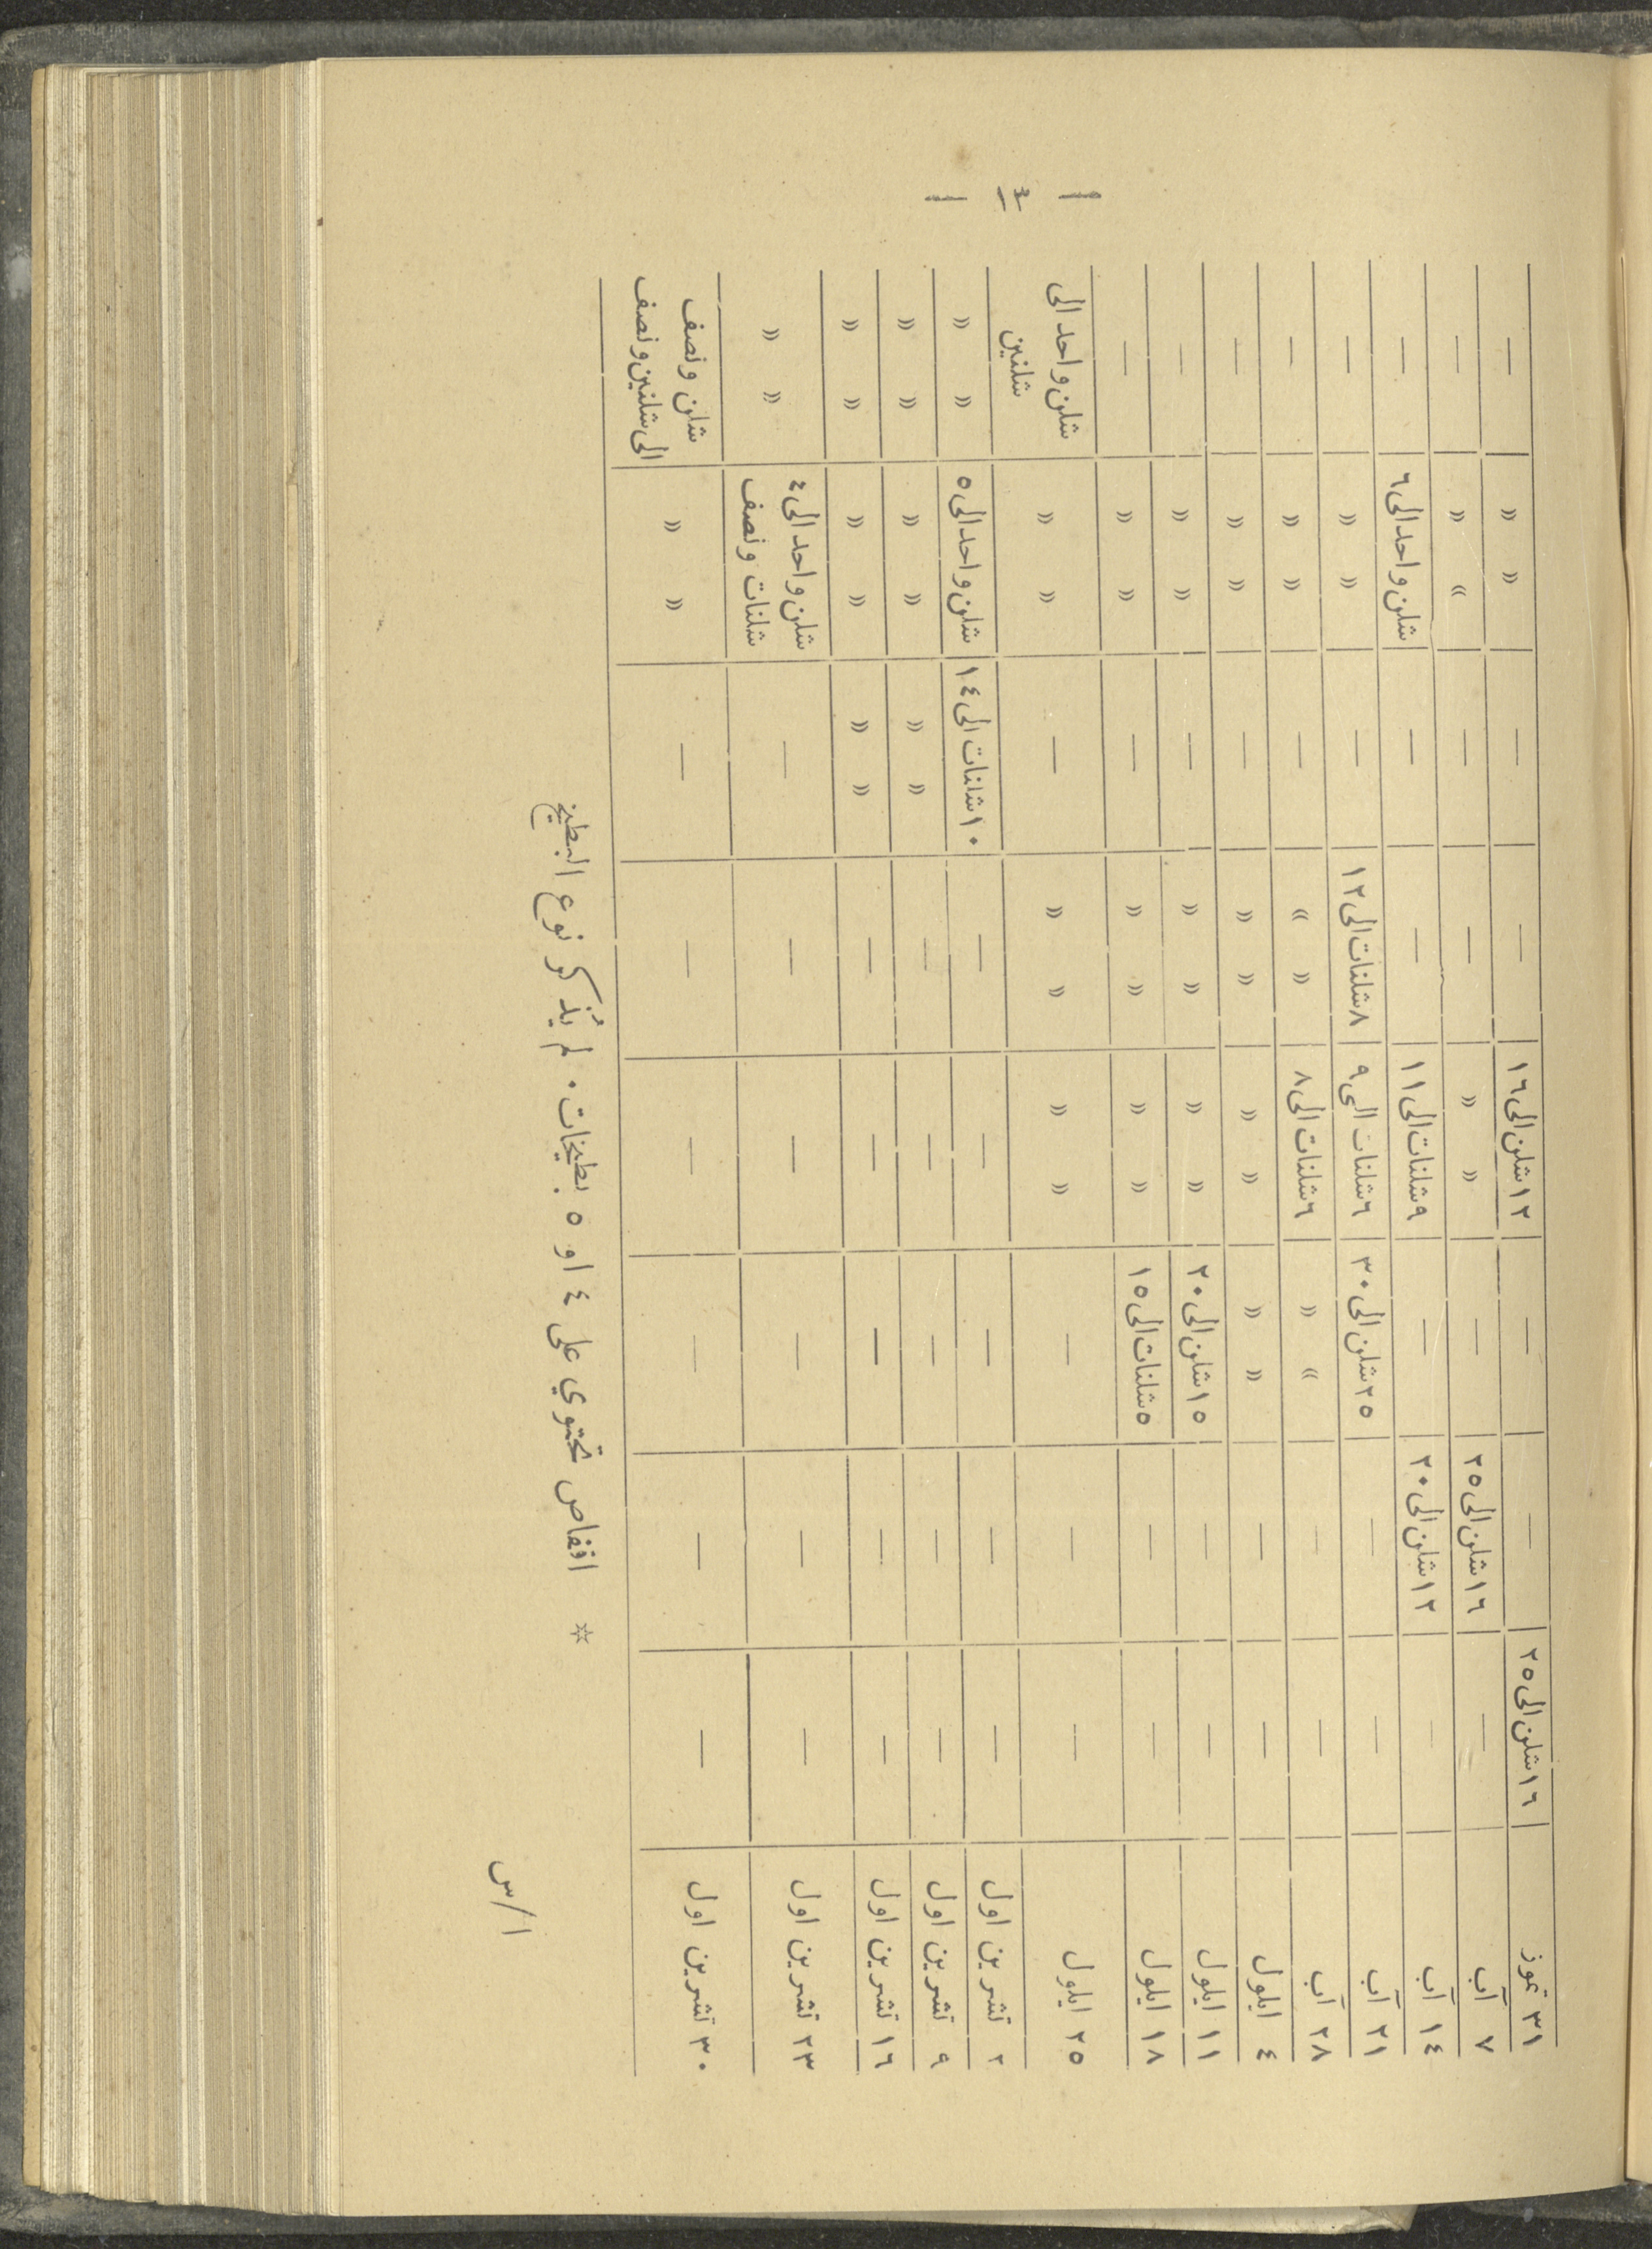 — ١٣ —
٣١ تموز ١٦ شلن الى ٢٥ — — ١٢ شلن الى ١٦ — — » » —
٧ آب — ١٦ شلن الى ٢٥ — » » — — » » —
١٤ آب — ١٢ شلن الى ٢٠ — ٩ شلنات الى ١١ — — شلن واحد الى ٦ —
٢١ آب — — ٢٥ شلن الى ٣٠ ٦ شلنات الى ٩ ٨ شلنات الى ١٢ — » » —
٢٨ آب — — » » ٦ شلنات الى ٨ » » — » » —
٤ ايلول — — » » » » » » — » » —
١١ ايلول — — ١٥ شلن الى ٢٠ » » » » — » » —
١٨ ايلول — — ٥ شلنات الى ١٥ » » » » — » » —
٢٥ ايلول — — — » » » » — » » شلن واحد الى
شلنين
٢ تشرين اول — — — — — ١٠ شلنات الى ١٤ شلن واحد الى ٥ » »
٩ تشرين اول — — — — — » » » » » »
١٦ تشرين اول — — — — — » » » » » »
٢٣ تشرين اول — — — — — — شلن واحد الى ٤ » »
شلنات ونصف
٣٠ تشرين اول — — — — — — » » شلن ونصف
الى شلنين ونصف
☆ اقفاص تحتوي على ٤ او ٥ بطيخات . لم يُذكر نوع البطيخ
ا/س